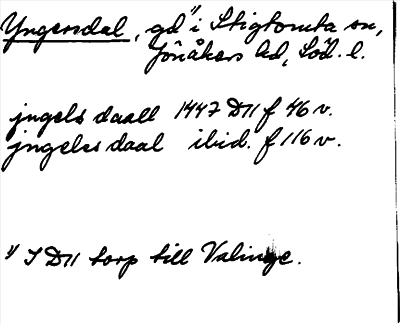 Yngersdal, gd¹⁾ i Stigtomta sn,
Jönåkers hd, Söd. l.
jngels daall 1447 D11 f 46 v.
jngeles daal ibid. f 116 v.
¹⁾ I D11 torp till Valinge.